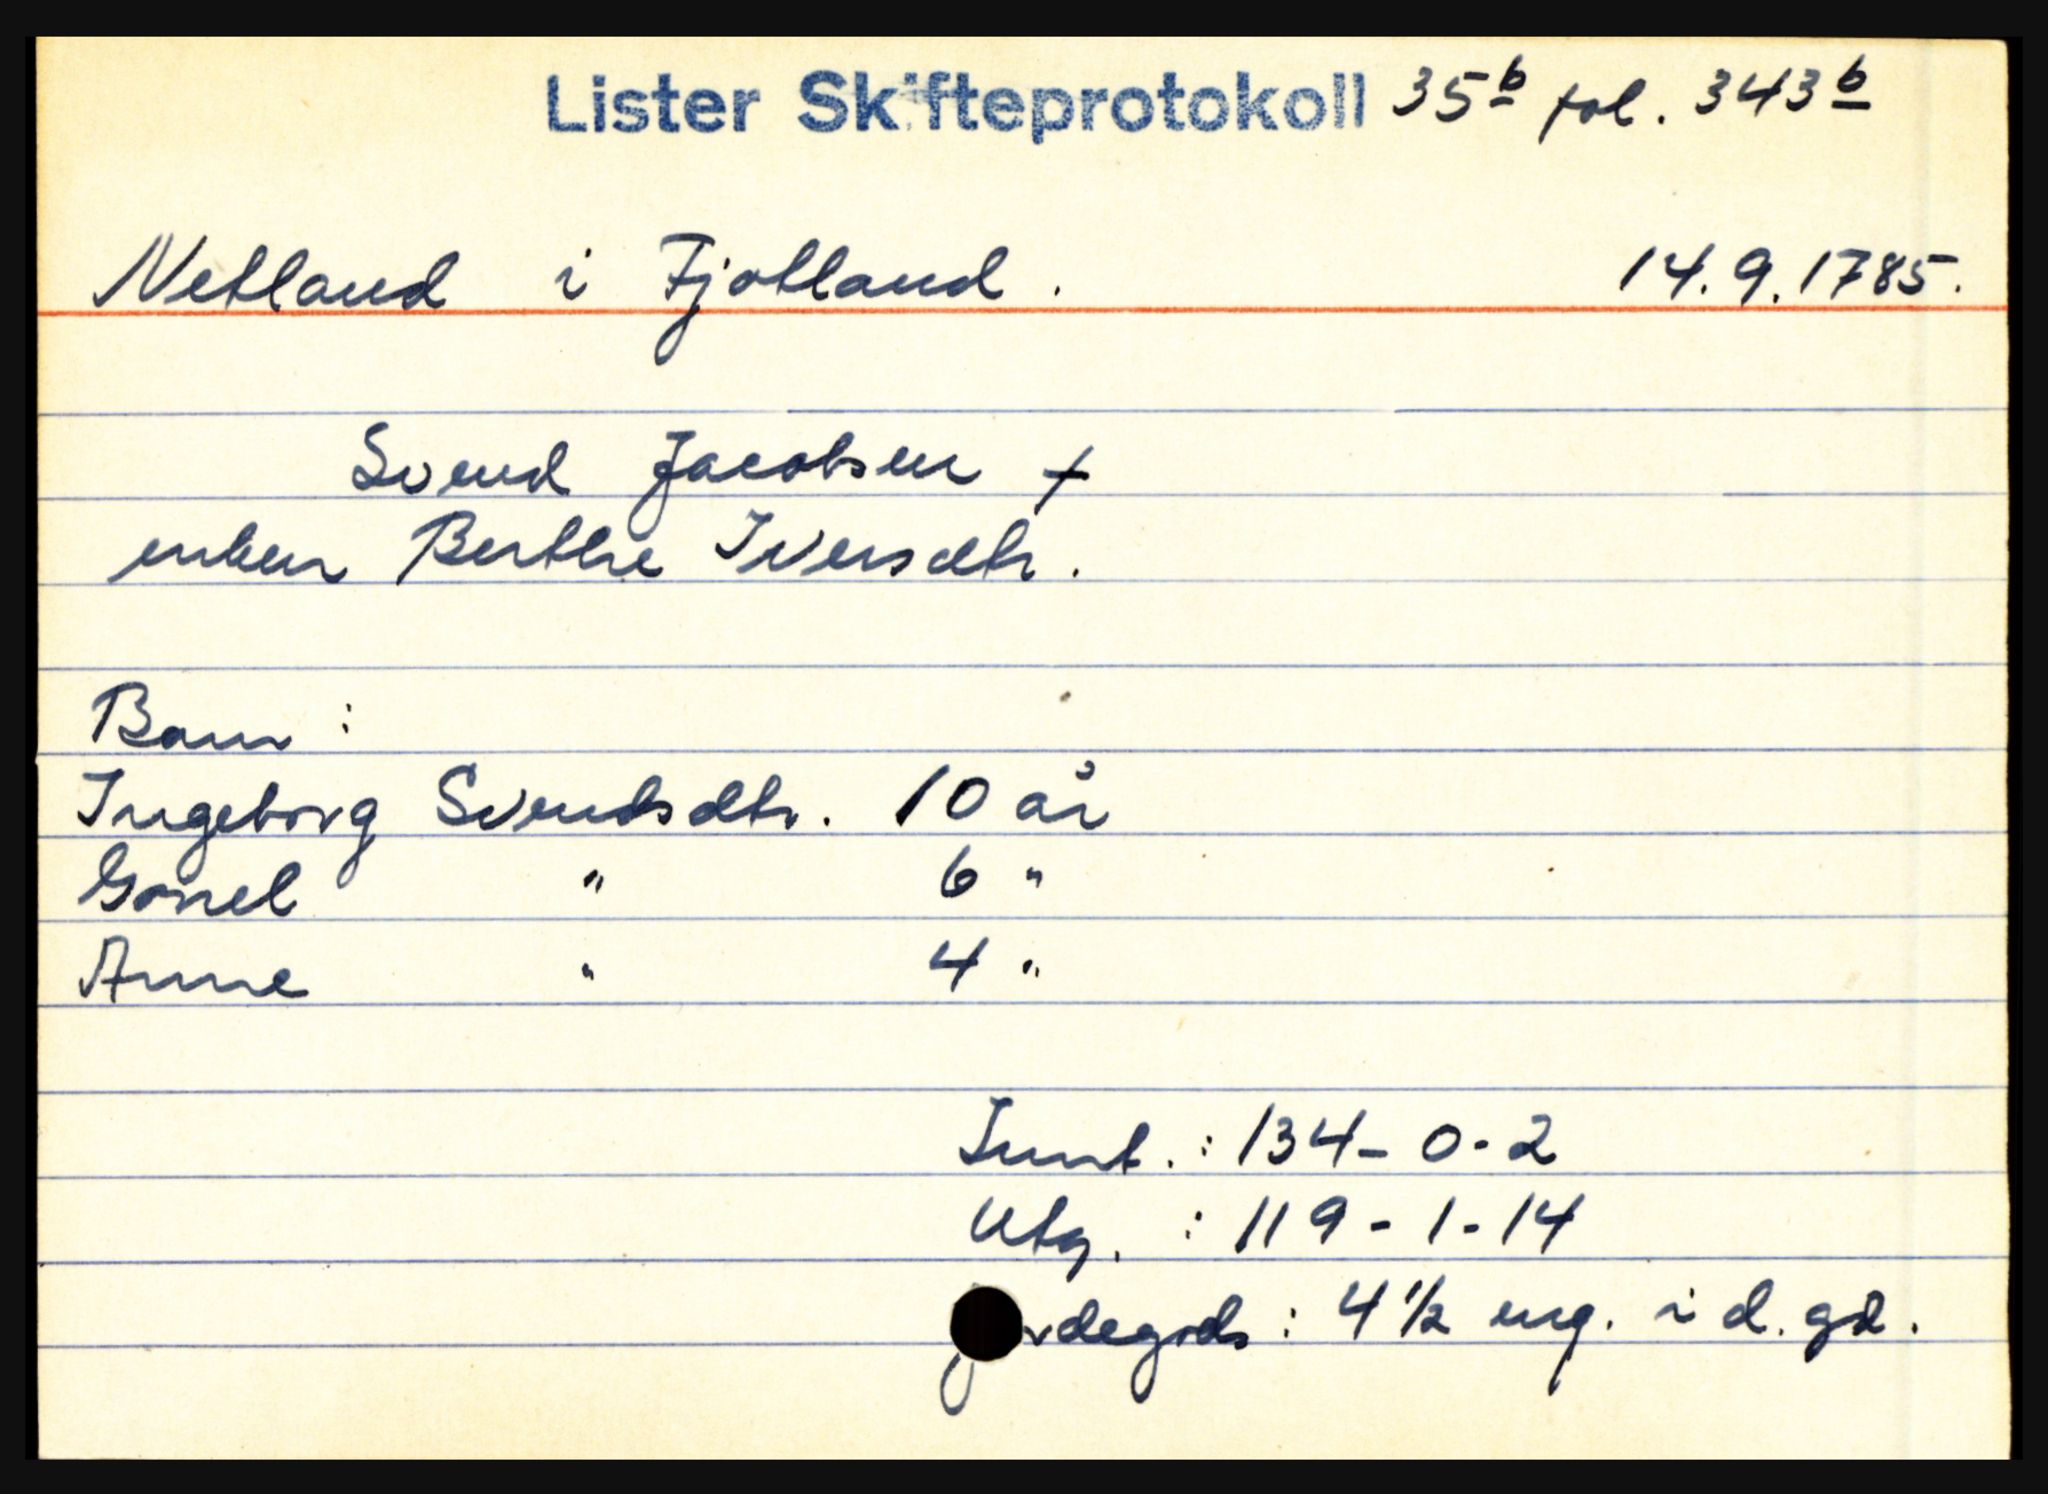 Lister Skifteprotokoll 35b fol. 343b
Netland i Fjotland. 14.9.1785.
Svend Jacobsen +
enken Berthe Iversdtr.
Barn:
Ingeborg Svendsdtr. 10 år
Gonel " 6 "
Anne " 4 "
Innt.: 134-0-2
Utg.: 119-1-14
Jordegods: 4 1/2 eng. i d. gd.